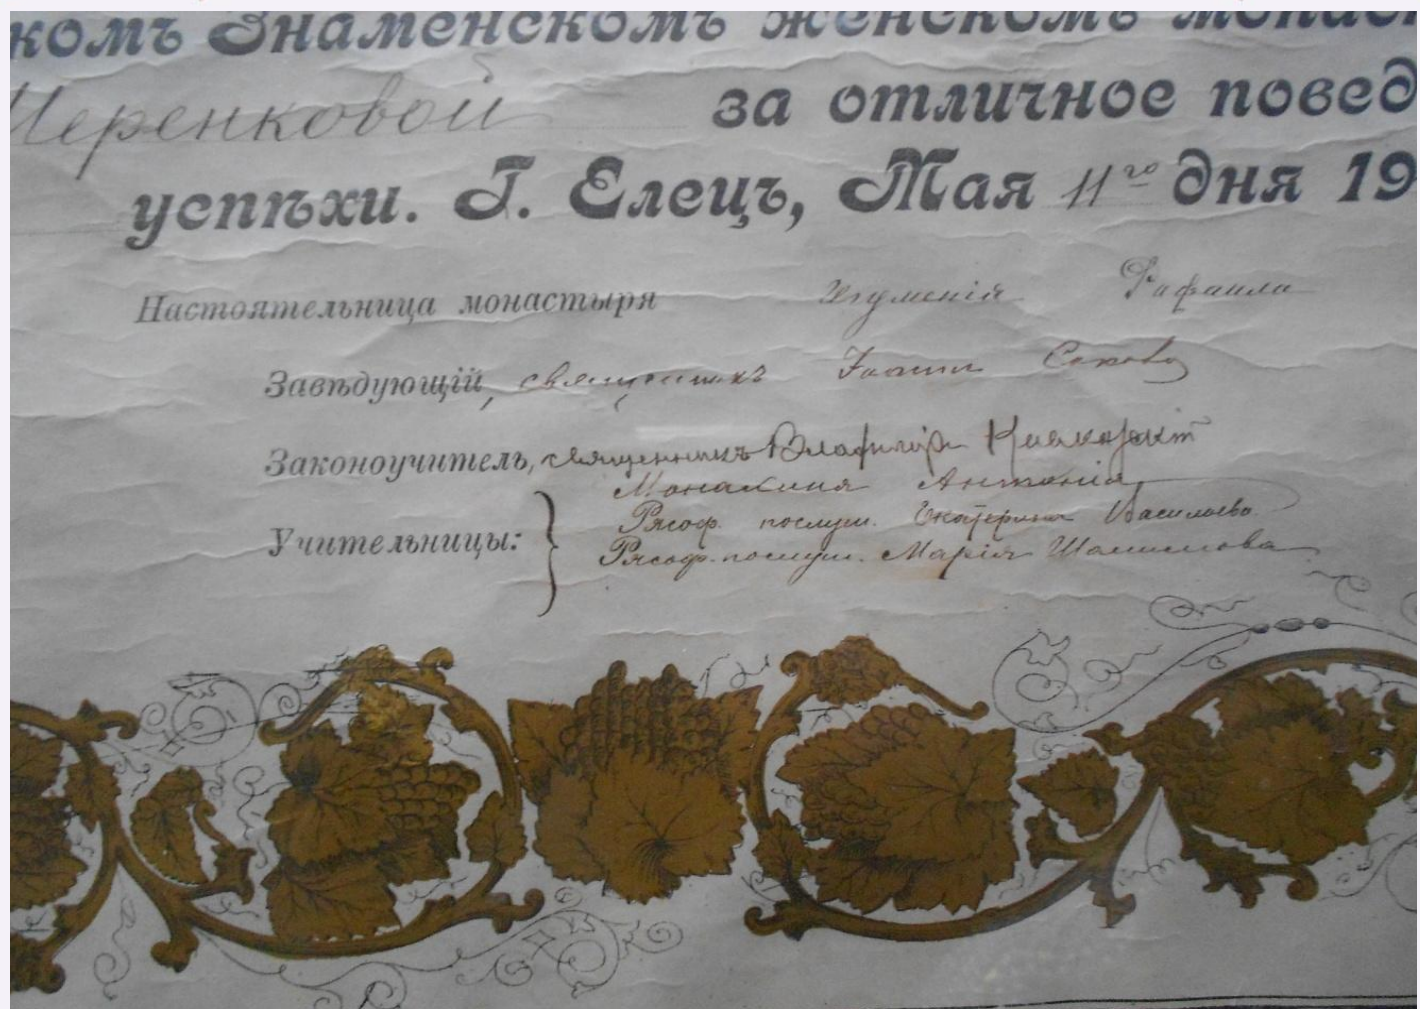 комъ Знаменскомъ женскомъ монас
Черенковой за отличное повед
успѣхи. Г. Елецъ, Мая 11го дня 19
Настоятельница монастыря Игуменія Рафаила
Завѣдующій, священникъ Іоаннъ
Законоучитель, священникъ Владиміръ
Монахиня Антонія
Учительницы: Рясоф. послуш. Екатерина Васильева
Рясоф. послуш. Марія